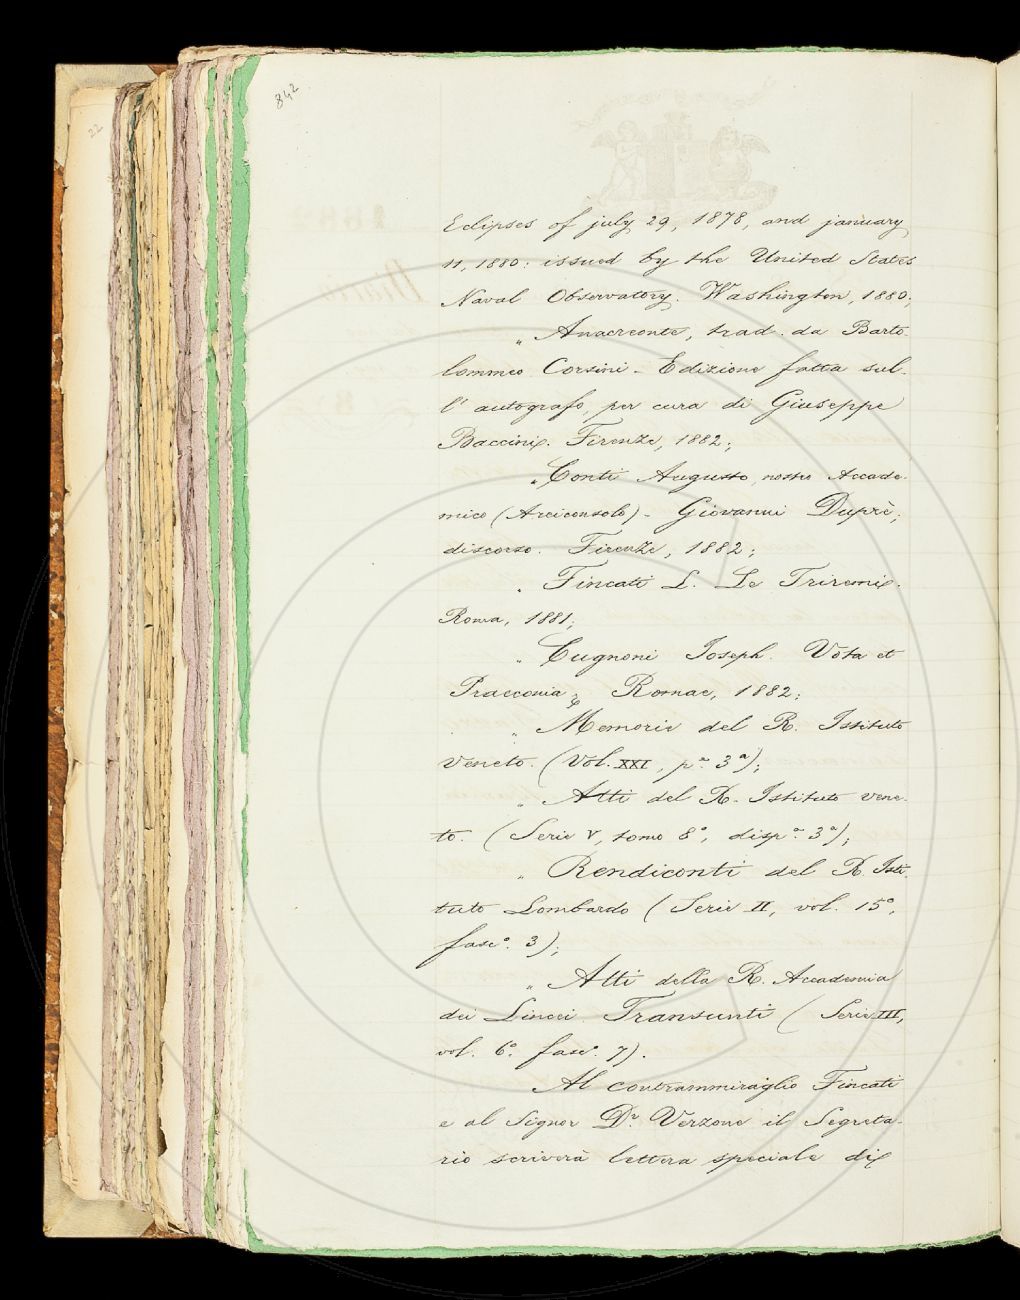 842
22
Eclipses of july 29, 1878, and january
11, 1880: issued by the United States
Naval Observatory. Washington, 1880;
„ Anacreonte, trad. da Barto-
lommeo Corsini - Edizione fatta sul-
l' autografo, per cura di Giuseppe
Baccini. Firenze, 1882;
„ Conti Augusto, nostro Accade-
mico (Arciconsolo) - Giovanni Duprè;
discorso. Firenze, 1882;
„ Fincati L. Le Triremi.
Roma, 1881;
„ Cugnoni Joseph. Vota et
Praeconia; Romae, 1882;
„ Memorie del R. Istituto
Veneto. (Vol. XXI, pᵉ 3ᵃ);
„ Atti del R. Istituto vene-
to. (Serie V, tomo 8°, dispᵃ 3ᵃ);
„ Rendiconti del R. Isti-
tuto Lombardo (Serie II, vol. 15°,
fasc° 3);
„ Atti della R. Accademia
dei Lincei. Transunti (Serie III,
vol. 6°. fasc° 7).
Al contrammiraglio Fincati
e al Signor Dʳ Verzone il Segreta-
rio scriverà lettera speciale di